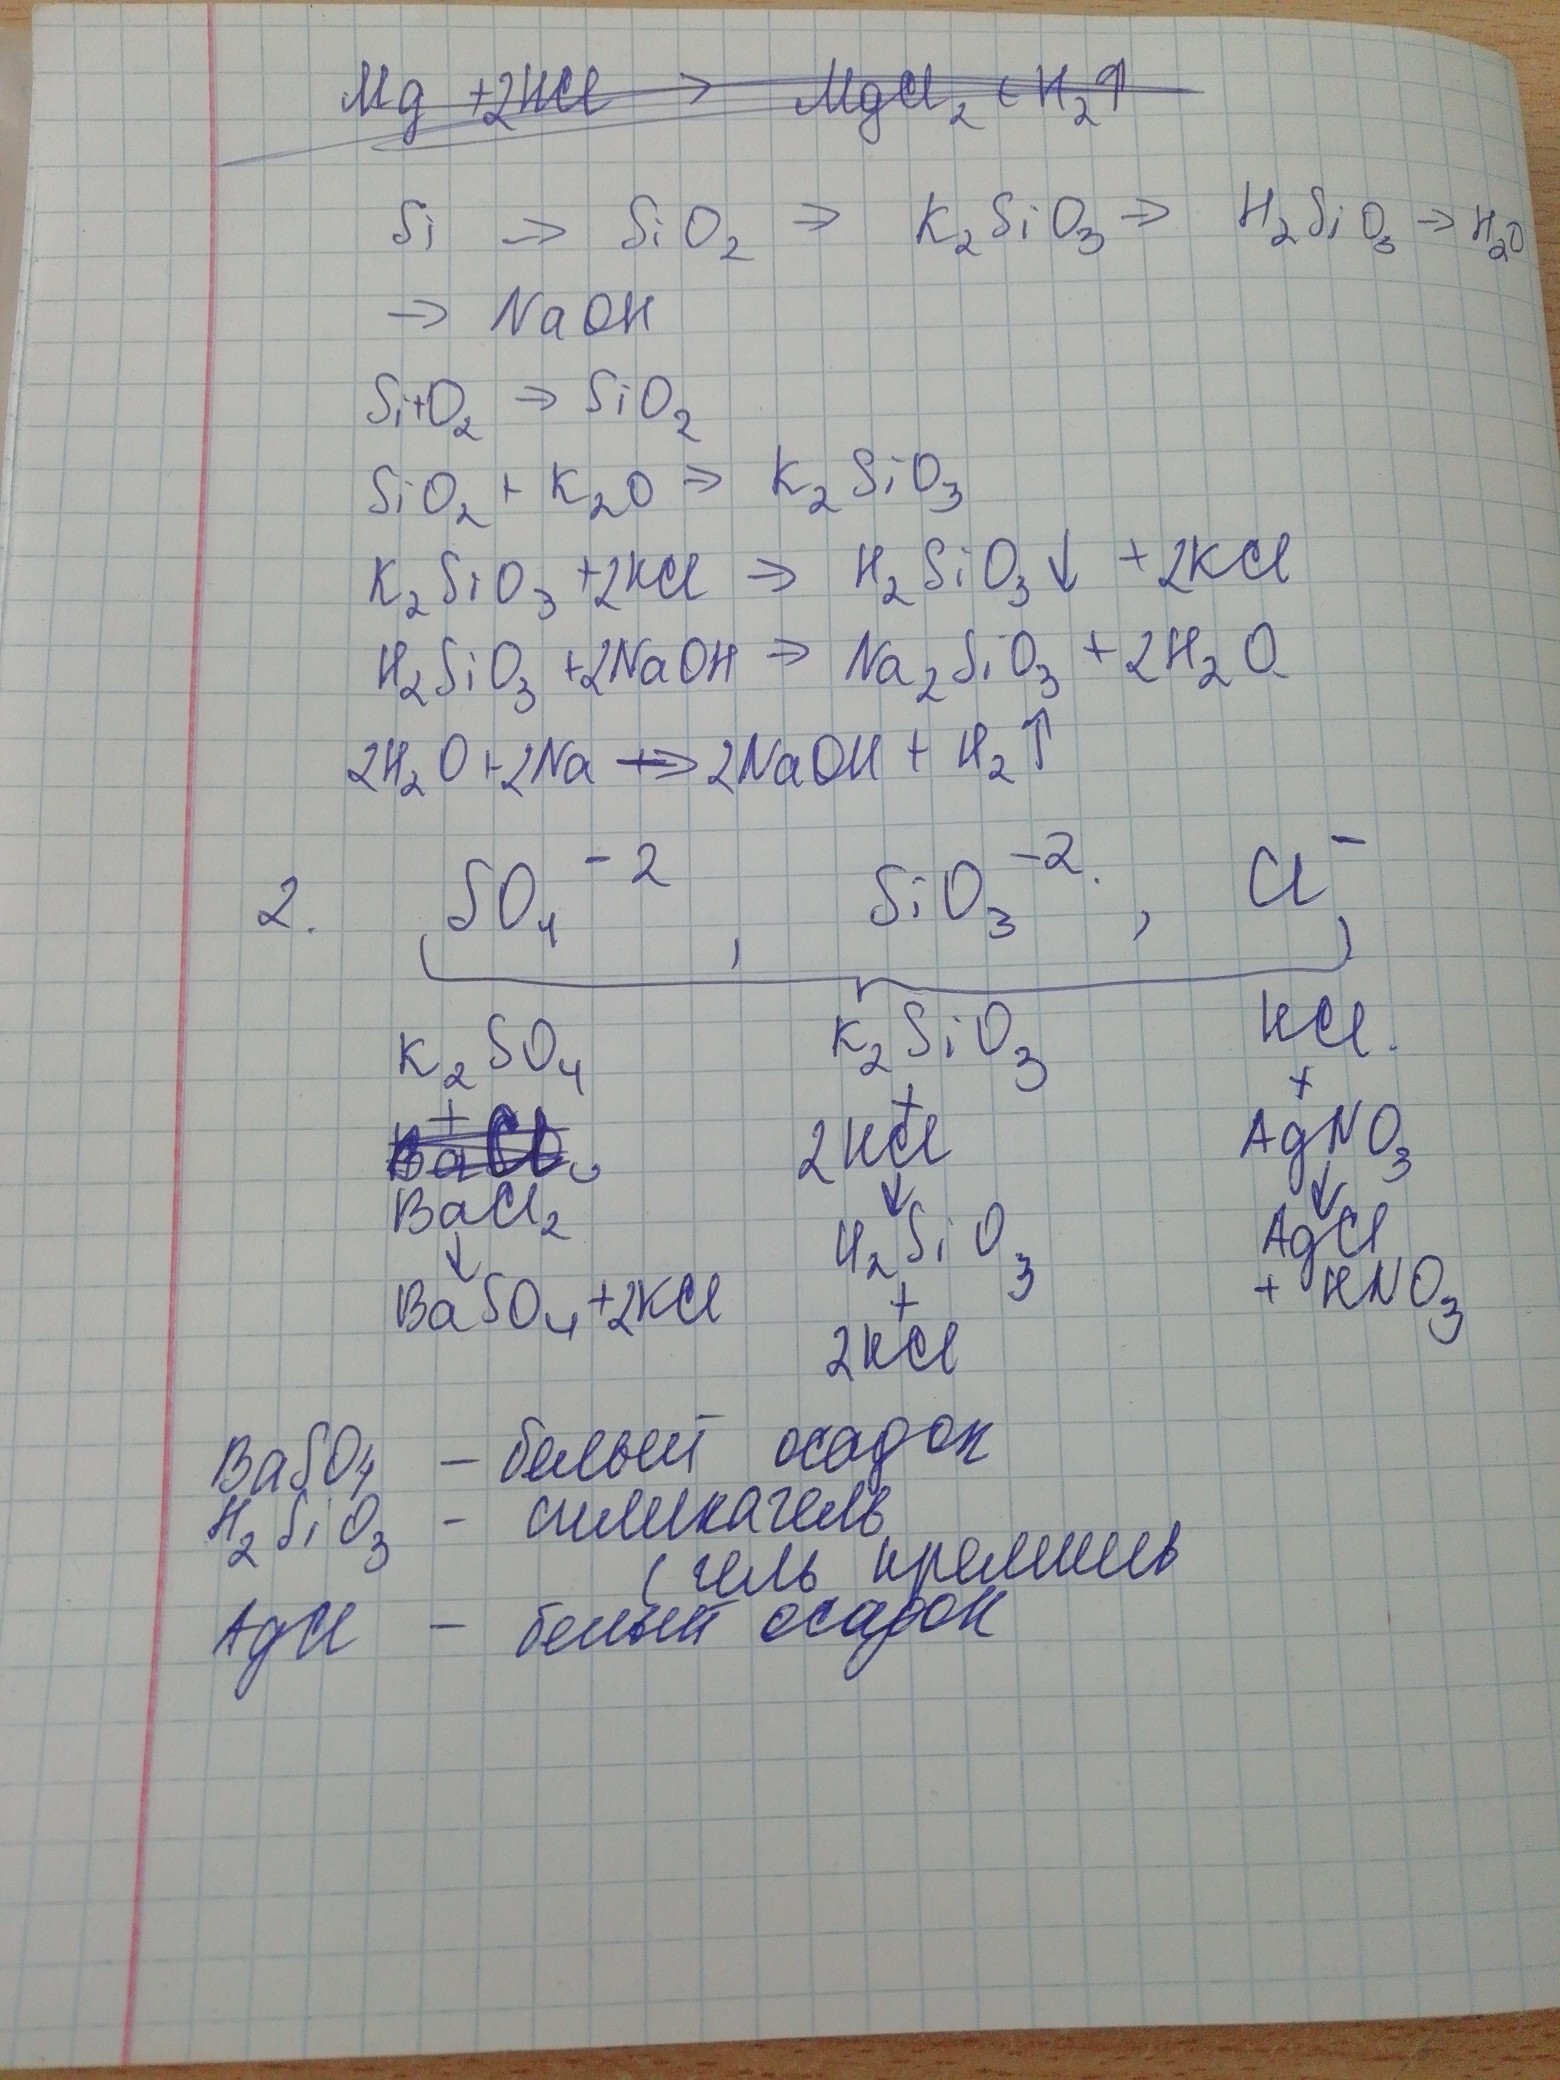 Mg + 2HCl → MgCl₂ + H₂↑
Si → SiO₂ → K₂SiO₃ → H₂SiO₃ → H₂O
→ NaOH
Si + O₂ → SiO₂
SiO₂ + K₂O → K₂SiO₃
K₂SiO₃ + 2HCl → H₂SiO₃↓ + 2KCl
H₂SiO₃ + 2NaOH → Na₂SiO₃ + 2H₂O
2H₂O + 2Na → 2NaOH + H₂↑
2. SO₄⁻², SiO₃⁻², Cl⁻
K₂SO₄ K₂SiO₃ HCl.
+ + +
BaCl₂ 2HCl AgNO₃
↓ ↓ ↓
BaSO₄ + 2KCl H₂SiO₃ AgCl
+ + HNO₃
2KCl
BaSO₄ – белый осадок
H₂SiO₃ – силикагель
(гель кремниев
AgCl – белый осадок